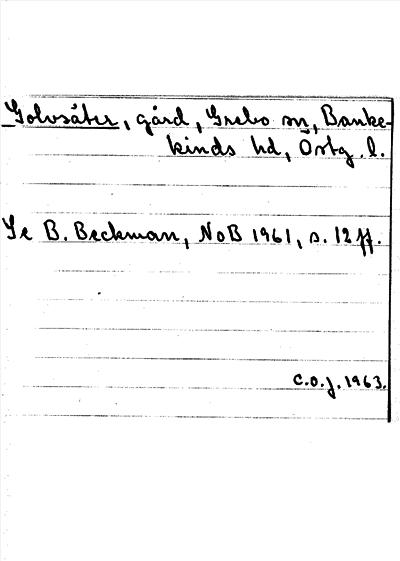 Golvsäter, gård, Grebo sn, Banke-
kinds hd, Östg. l.
Se B. Beckman, NoB 1961, s. 12 ff.
C.O.J. 1963.